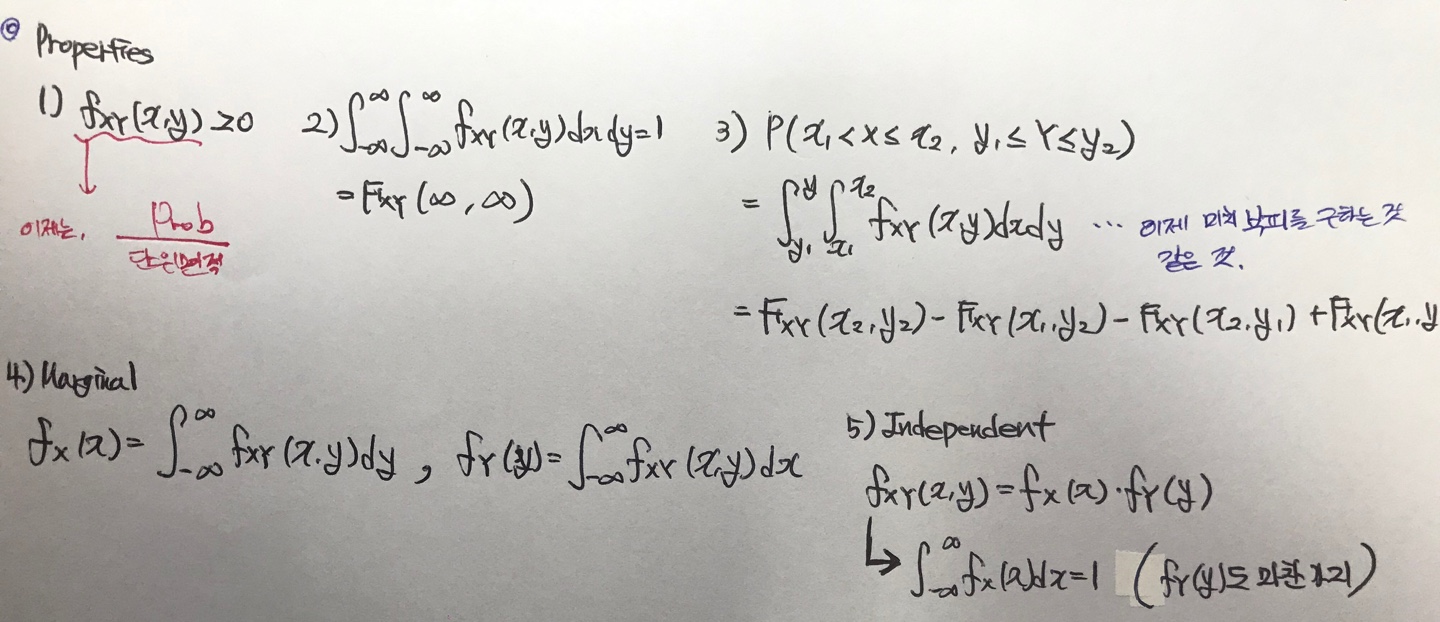 ◎ Properties
1) fxy(x,y) ≥0
이제는, Prob
단위면적
2) ∫_{-∞}^{∞}∫_{-∞}^{∞} fxy(x,y)dxdy=1
= Fxy(∞,∞)
3) P(x₁<X≤x₂, y₁≤Y≤y₂)
= ∫_{y₁}^{y}∫_{x₁}^{x₂} fxy(x,y)dxdy ... 이제 마치 부피를 구하는 것
같은 것.
= Fxy(x₂,y₂) - Fxy(x₁,y₂) - Fxy(x₂,y₁) + Fxy(x₁,y
4) Marginal
fx(x)= ∫_{-∞}^{∞} fxy(x,y)dy, fy(y)= ∫_{-∞}^{∞} fxy(x,y)dx
5) Independent
fxy(x,y)=fx(x)·fy(y)
↳ ∫_{-∞}^{∞} fx(x)dx=1 (fy(y)도 마찬가지)